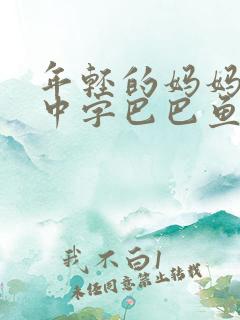 年轻的妈妈
中字巴巴鱼
我不白1
未经同意禁止转载